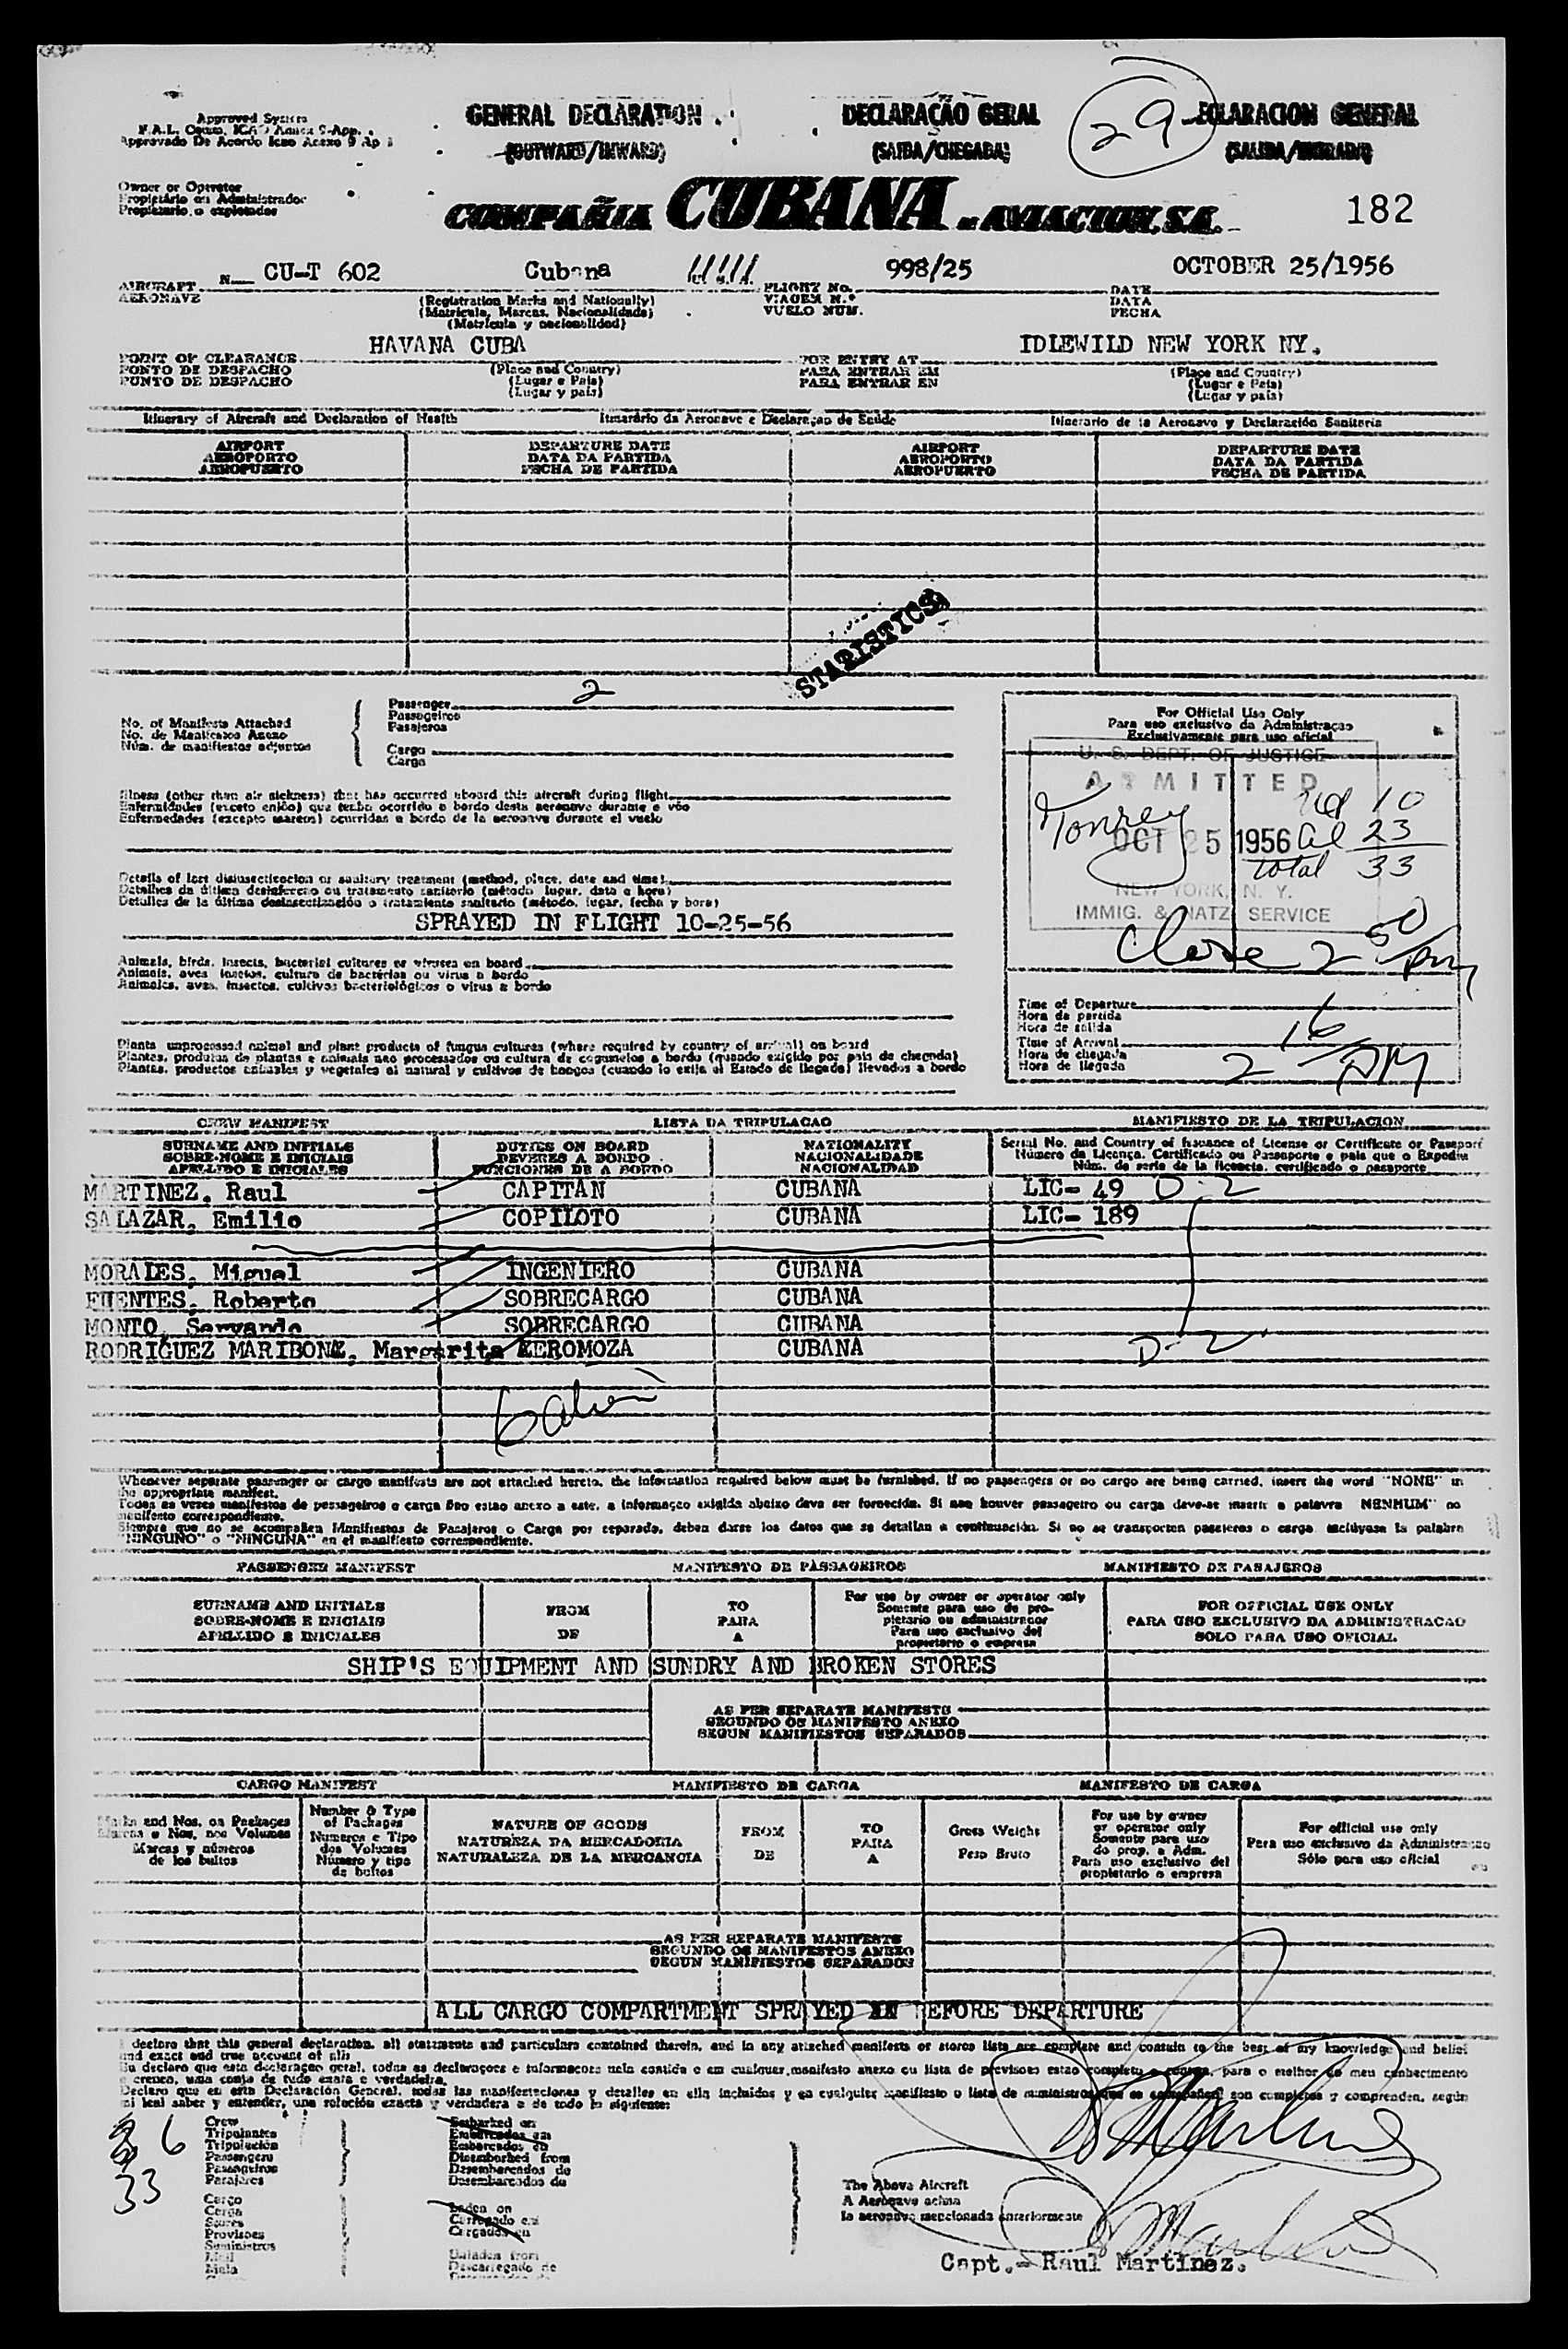 Approved System
GENERAL DECLARATION
(OUTWARD/INWARD)
DECLARAÇÃO GERAL
(SAIDA/CHEGADA)
29
DECLARACION GENERAL
Owner or Operator
Propietário ou Administrador
Propietario o explotador
COMPAÑIA CUBANA de AVIACION, S.A.
182
AIRCRAFT N. CU-T 602 Cubana
AERONAVE
(Registration Marks and Nationality)
(Matricula, Marcas, Nacionalidade)
(Matrícula y nacionalidad)
FLIGHT No. 998/25
VIAGEM N.º
VUELO NUM.
DATE OCTOBER 25/1956
DATA
FECHA
POINT OF CLEARANCE HAVANA CUBA
PONTO DE DESPACHO
PUNTO DE DESPACHO
(Place and Country)
(Lugar e Pais)
(Lugar y país)
FOR ENTRY AT IDLEWILD NEW YORK NY.
PARA ENTRAR EM
PARA ENTRAR EN
(Place and Country)
(Lugar e Pais)
(Lugar y país)
Itinerary of Aircraft and Declaration of Health
Itinerário da Aeronave e Declaraçao de Saúde
Itinerario de la Aeronave y Declaración Sanitaria
AIRPORT
AEROPORTO
AEROPUERTO
DEPARTURE DATE
DATA DA PARTIDA
FECHA DE PARTIDA
AIRPORT
AEROPORTO
AEROPUERTO
DEPARTURE DATE
DATA DA PARTIDA
FECHA DE PARTIDA
STATISTICS
No. of Manifests Attached
No. de Manifestos Anexo
Núm. de manifiestos adjuntos
Passenger 2
Passageiros
Pasajeros
Cargo
Carga
For Official Use Only
Para uso exclusivo da Administraçao
Exclusivamente para uso oficial
U. S. DEPT. OF JUSTICE
ADMITTED
10
OCT 25 1956 al 23
total 33
NEW YORK, N. Y.
IMMIG. & NATZ SERVICE
Close 2 50 PM
Illness (other than air sickness) that has occurred aboard this aircraft during flight
Enfermidades (exceto enjôo) que tenha ocorrido a bordo desta aeronave durante o vôo
Enfermedades (excepto mareos) ocurridas a bordo de la aeronave durante el vuelo
Details of last disinsectization or sanitary treatment (method, place, date and time)
Detalles de la última desinsectización o tratamiento sanitario (método, lugar, fecha y hora)
SPRAYED IN FLIGHT 10-25-56
Animals, birds, insects, bacterial cultures or viruses on board
Animais, aves insetos, cultura de bactérias ou virus a bordo
Animales, aves, insectos, cultivos bacteriológicos o virus a bordo
Time of Departure
Hora da partida
Hora de salida
Time of Arrival 2 16 PM
Hora de chegada
Hora de llegada
Plants unprocessed animal and plant products of fungus cultures (where required by country of arrival) on board
Plantas, produtos de plantas e animais nao processados ou cultura de cogumelos a bordo (quando exigido por pais de chegada)
Plantas, productos animales y vegetales al natural y cultivos de hongos (cuando lo exija el Estado de llegada) llevados a bordo
CREW MANIFEST LISTA DA TRIPULACAO MANIFIESTO DE LA TRIPULACION
SURNAME AND INITIALS
SOBRE-NOME E INICIAIS
APELLIDO E INICIALES
DUTIES ON BOARD
DEVERES A BORDO
FUNCIONES DE A BORDO
NATIONALITY
NACIONALIDADE
NACIONALIDAD
Serial No. and Country of Issuance of License or Certificate or Passport
Número da Licença. Certificado ou Passaporte e pais que o Expediu
Núm. de serie de la licencia, certificado o pasaporte
MARTINEZ, Raul CAPITAN CUBANA LIC- 49 D-2
SALAZAR, Emilio COPILOTO CUBANA LIC- 189
MORALES, Miguel INGENIERO CUBANA
FUENTES, Roberto SOBRECARGO CUBANA
MONTO, Servando SOBRECARGO CUBANA
RODRIGUEZ MARIBONA, Margarita AEROMOZA CUBANA
D-2
Whenever separate passenger or cargo manifests are not attached hereto, the information required below must be furnished. If no passengers or no cargo are being carried, insert the word "NONE" in
the appropriate manifest.
Todas as vezes manifestos de passageiros e carga nao estao anexo a este, a informaçao exigida abaixo deve ser fornecida. Si nao houver passageiro ou carga deve-se inserir a palavra NENHUM" no
manifesto correspondiente.
Siempre que no se acompañen Manifiestos de Pasajeros o Carga por separado, deben darse los datos que se detallan a continuación. Si no se transporten pasajeros o carga, inclúyase la palabra
"NINGUNO" o "NINGUNA" en el manifiesto correspondiente.
PASSENGER MANIFEST MANIFESTO DE PASSAGEIROS MANIFIESTO DE PASAJEROS
SURNAME AND INITIALS
SOBRE-NOME E INICIAIS
APELLIDO E INICIALES
FROM
DE
TO
PARA
A
For use by owner or operator only
Somente para uso de pro-
pietario ou administrador
Para uso exclusivo del
propietario o empresa
FOR OFFICIAL USE ONLY
PARA USO EXCLUSIVO DA ADMINISTRACAO
SOLO PARA USO OFICIAL
SHIP'S EQUIPMENT AND SUNDRY AND BROKEN STORES
AS PER SEPARATE MANIFESTS
SEGUNDO OS MANIFESTO ANEXO
SEGUN MANIFIESTOS SEPARADOS
CARGO MANIFEST MANIFIESTO DE CARGA MANIFESTO DE CARGA
Marks and Nos. on Packages
Marcas e Nos. nos Volumes
Marcas y números
de los bultos
Number & Type
of Packages
Numeros e Tipo
dos Volumes
Número y tipo
de bultos
NATURE OF GOODS
NATUREZA DA MERCADORIA
NATURALEZA DE LA MERCANCIA
FROM
DE
TO
PARA
A
Gross Weight
Peso Bruto
For use by owner
or operator only
Somente para uso
do prop. e Adm.
Para uso exclusivo del
propietario o empresa
For official use only
Para uso exclusivo da Administraçao
Sólo para uso oficial
AS PER SEPARATE MANIFESTS
SEGUNDO OS MANIFESTOS ANEXO
SEGUN MANIFIESTOS SEPARADOS
ALL CARGO COMPARTMENT SPRAYED BEFORE DEPARTURE
I declare that this general declaration, all statements and particulars contained therein, and in any attached manifests or stores lists are complete and contain to the best of my knowledge and belief
and exact and true account of all
6
33
Crew
Tripulantes
Tripulación
Passengers
Passageiros
Pasajeros
Cargo
Carga
Stores
Provisoes
Suministros
Mail
Mala
Embarked on
Embarcados em
Embarcados en
Disembarked from
Desembarcados de
Desembarcados de
Laden on
Carregado em
Cargados en
Unladen from
Descarregado de
The Above Aircraft
A Aeronave acima
la aeronave mencionada anteriormente
Capt.- Raul Martinez.